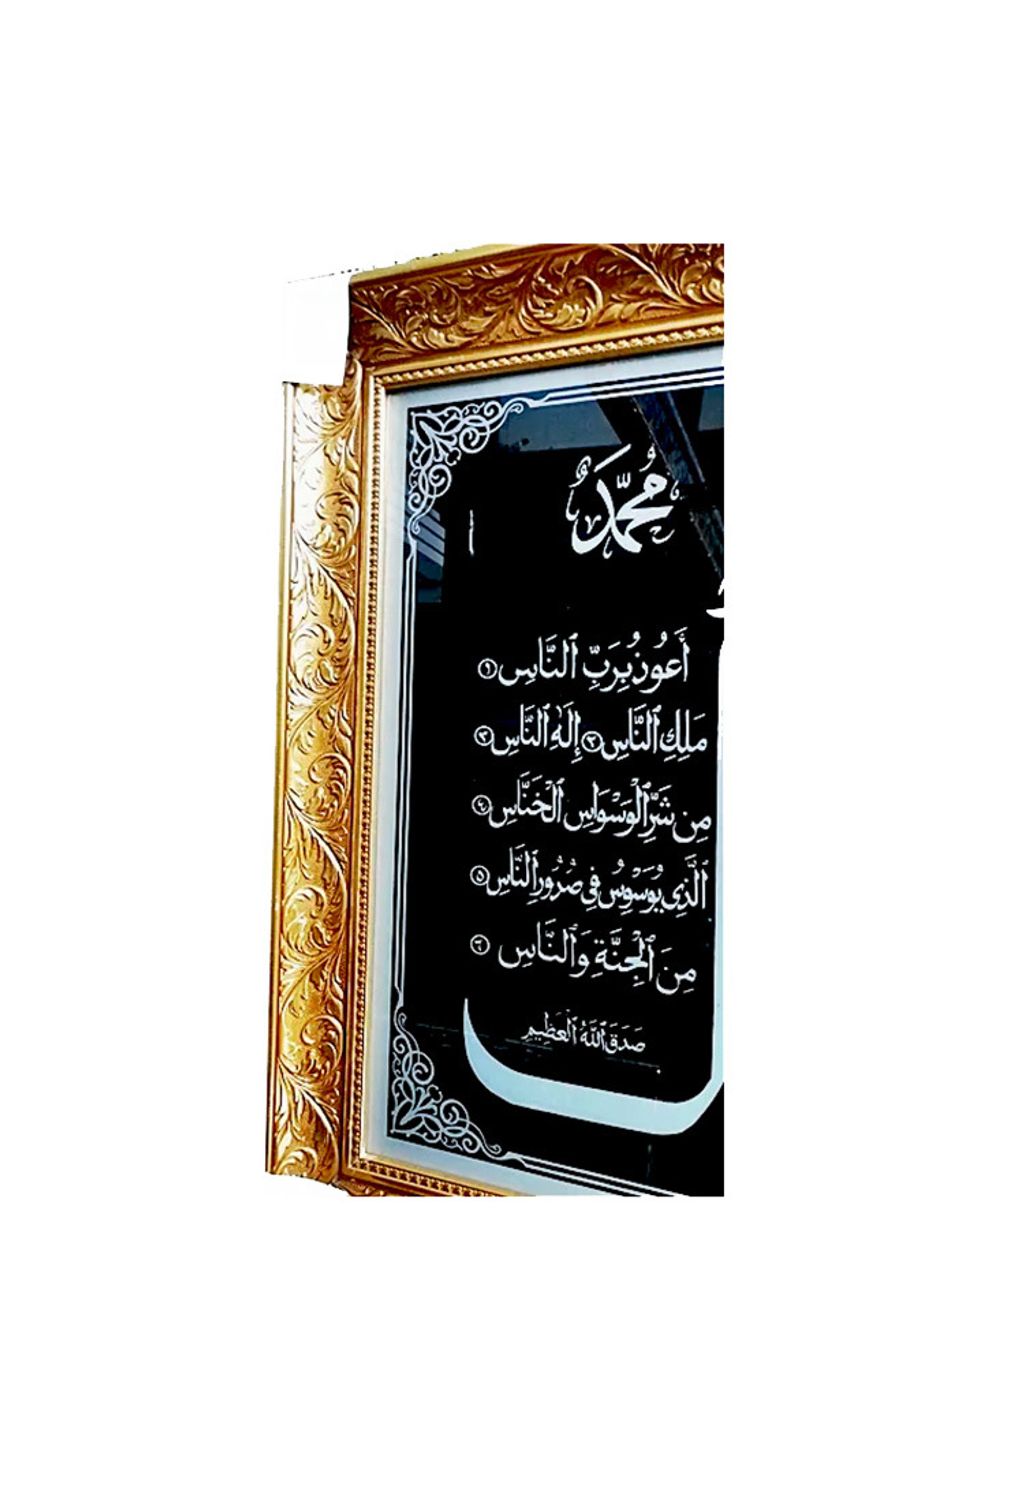 مُحَمَّدٌ
أَعُوذُ بِرَبِّ ٱلنَّاسِ ١
مَلِكِ ٱلنَّاسِ ٢ إِلَٰهِ ٱلنَّاسِ ٣
مِن شَرِّ ٱلْوَسْوَاسِ ٱلْخَنَّاسِ ٤
ٱلَّذِى يُوَسْوِسُ فِى صُدُورِ ٱلنَّاسِ ٥
مِنَ ٱلْجِنَّةِ وَٱلنَّاسِ ٦
صَدَقَ ٱللَّهُ ٱلْعَظِيمُ